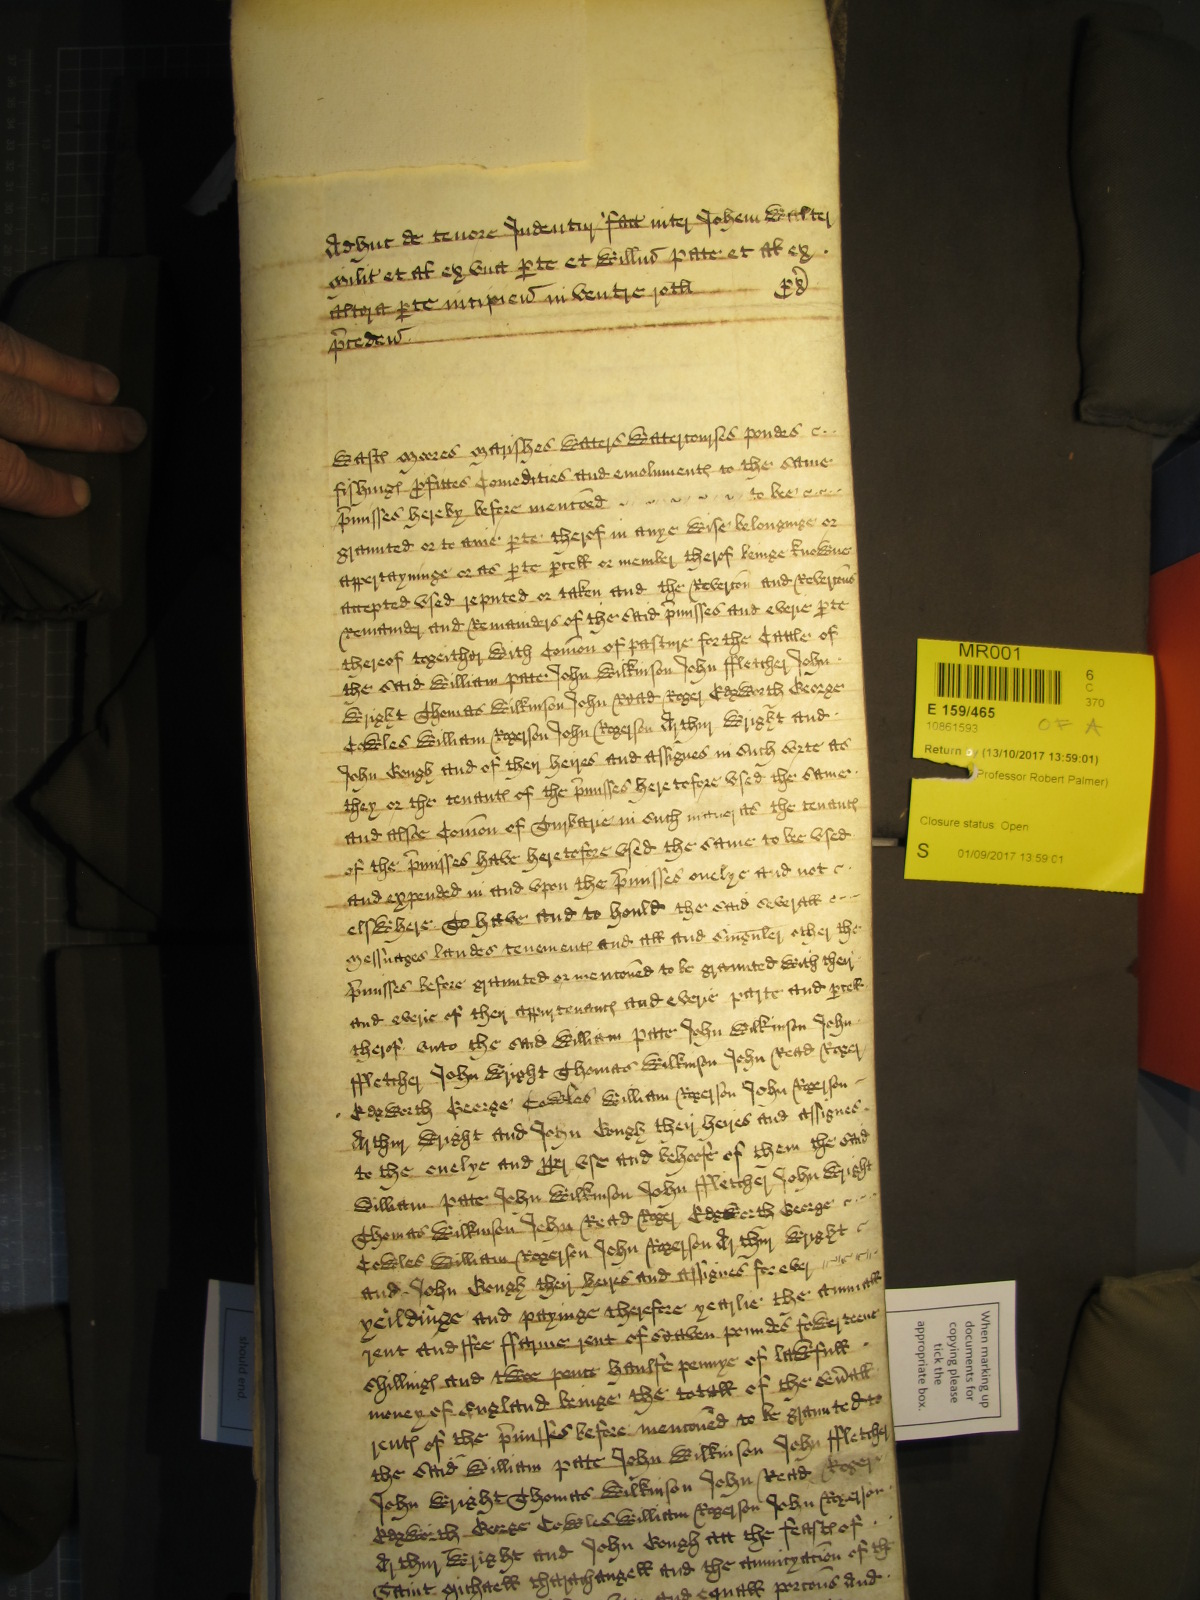 Adhuc de tenore Indentur' fact inter Johem Walter
milit et al ex vna pte et Willm Pate et al ex
altera pte incipien in ventre rotli
pceden
Wasts Moores Marishes Waters Watercourses pondes
fishings pfittes Comodities and emoluments to the same
pmisses hereby before mentioned to bee
graunted or to anie pte therof in anye wise belonginge or
appertayninge or as pte pcell or member therof beinge knowne
accepted vsed reputed or taken and the Revercon and Revercons
Remainder and Remainders of the said pmisses and everie pte
thereof togeither with Comon of pasture for the Cattle of
the said William Pate John Wilkinson John ffletcher John
Wright Thomas Wilkinson John Read Roger Edgworth George
Cowles William Rogerson John Rogerson Arthur Wright and
John Gough and of their heires and assignes in such sorte as
they or the tenants of the pmisses heretofore vsed the same
and alsoe Comon of Turbarie in such maner as the tenants
of the pmisses have heretofore vsed the same to bee vsed
and expended in and vpon the pmisses onelye and not
elswhere To have and to hould the said severall
Messuages landes tenements and all and singuler other the
pmisses before graunted or menconed to be graunted with their
and everie of their appurtenants and everie parte and pcell
therof vnto the said William Pate John Wilkinson John
ffletcher John Wright Thomas Wilkinson John Read Roger
Edgworth George Cowles William Rogerson John Rogerson
Arthur Wright and John Gough their heires and assignes
to the onelye and pper vse and behoofe of them the said
William Pate John Wilkinson John ffletcher John Wright
Thomas Wilkinson John Read Roger Edgworth George
Cowles William Rogerson John Rogerson Arthur Wright
and John Gough their heires and assignes for ever
yeildinge and payinge therefore yearlie the annuall
rent and ffee ffarme rent of seaven poundes fowerteene
shillings and twoe pence haulfe pennye of lawfull
money of England beinge the totall of the severall
rents of the pmisses before menconed to be graunted to
the said William Pate John Wilkinson John ffletcher
John Wright Thomas Wilkinson John Read Roger
Edgworth George Cowles William Rogerson John Rogerson
Arthur Wright and John Gough att the feasts of
Saint Michaell tharchangell and the annuncyacion of the
and equall porcons and
MR001
6
C
370
E 159/465
10861593
OF A
Return by (13/10/2017 13:59:01)
Professor Robert Palmer)
Closure status: Open
S 01/09/2017 13:59:01
When marking up
documents for
copying please
tick the
appropriate box.
should end.